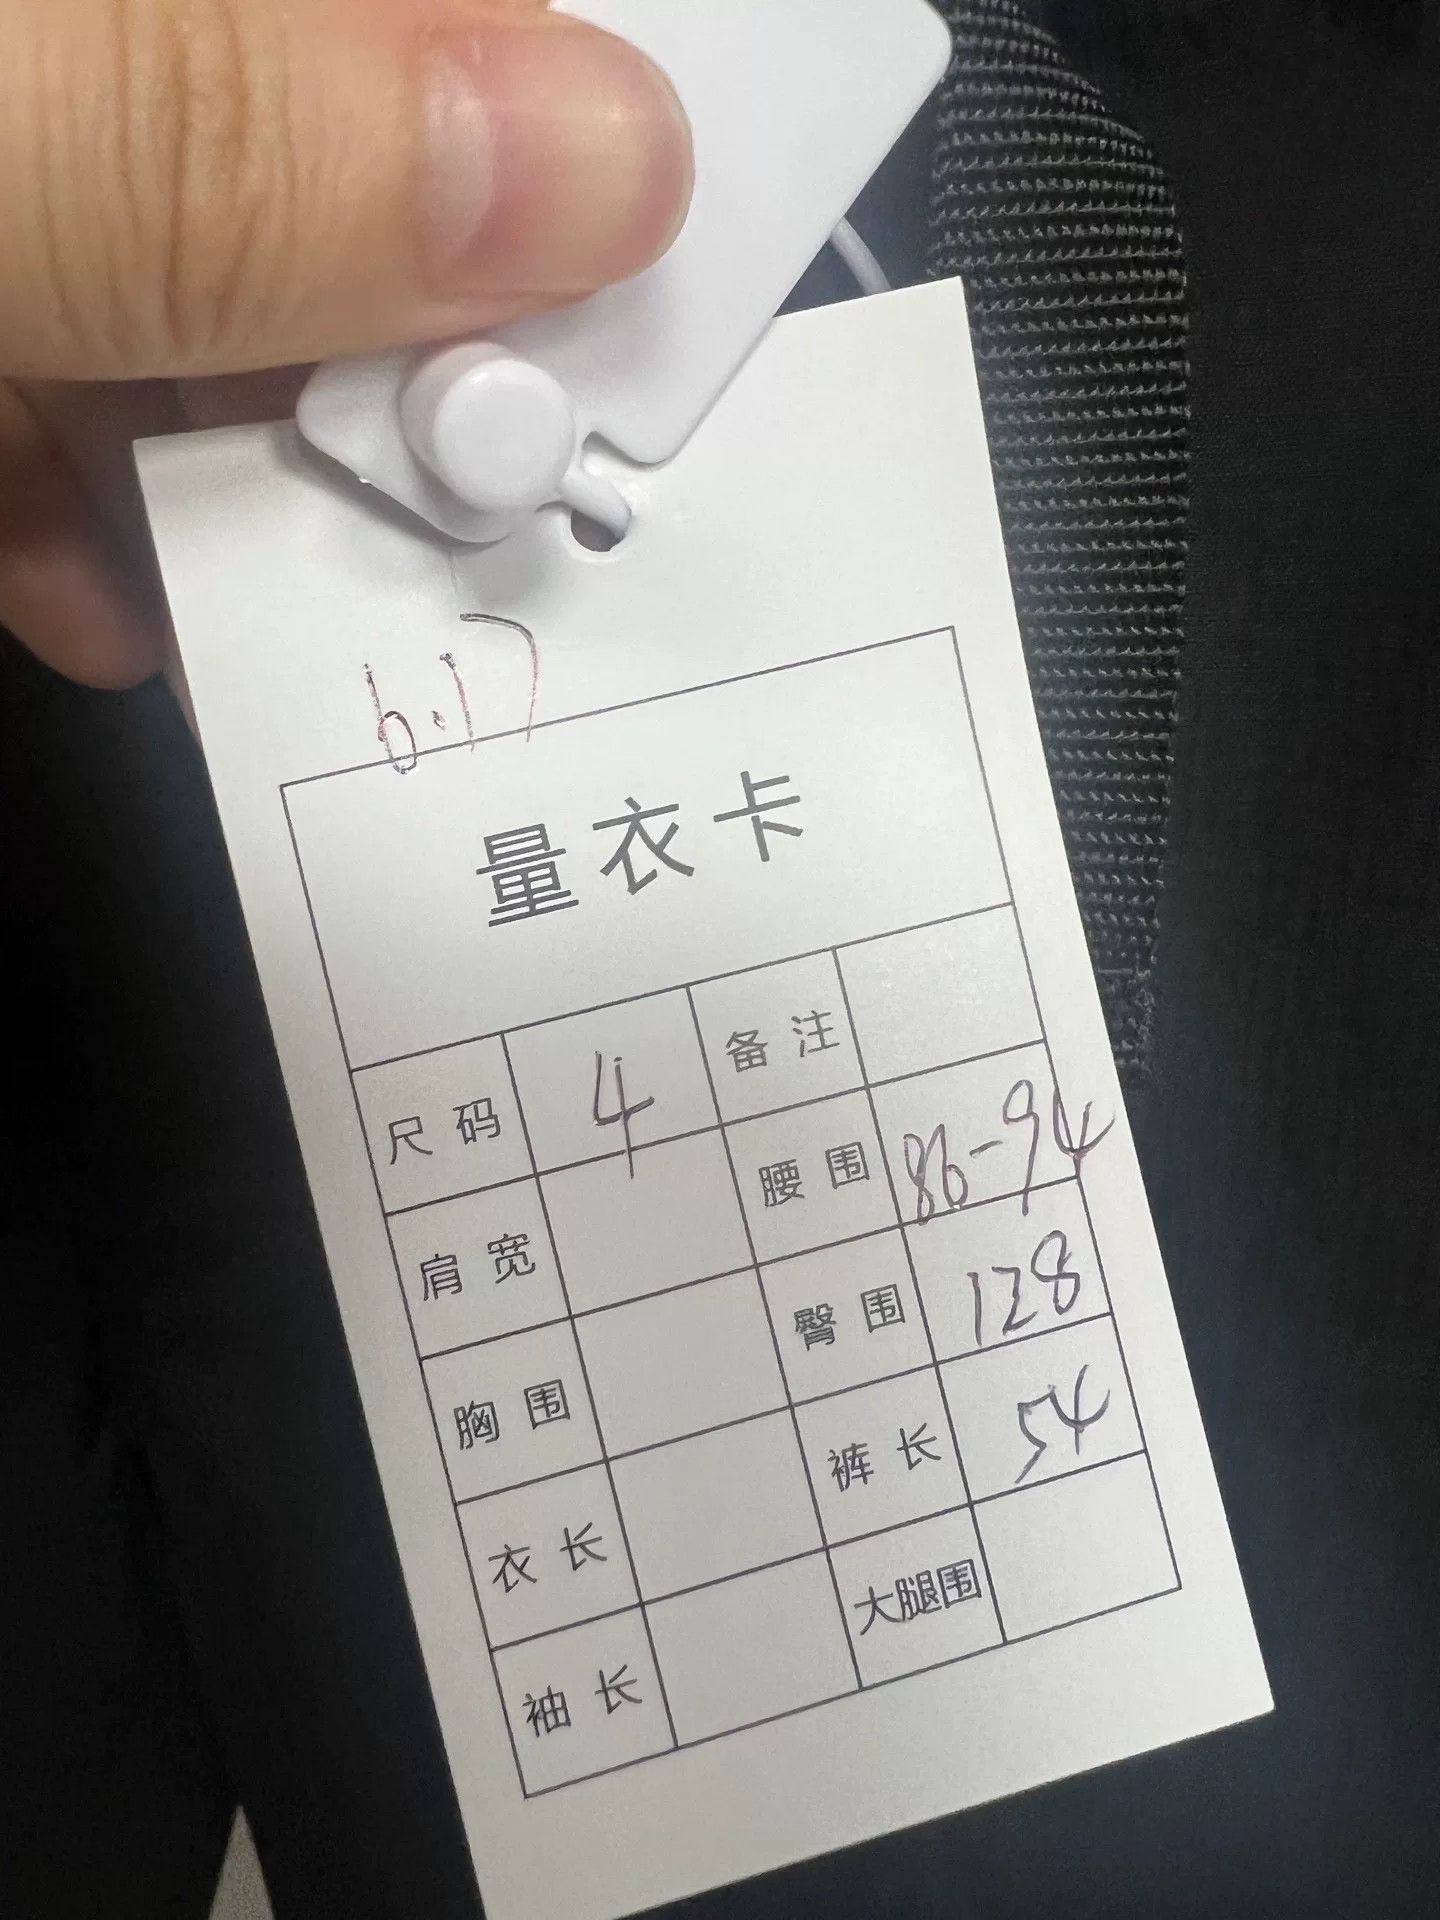 6.17
量衣卡
尺码 4 备注
肩宽 腰围 86-94
胸围 臀围 128
衣长 裤长 54
袖长 大腿围